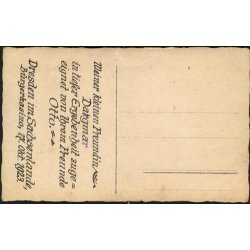 Meiner kleinen Freundin
Dagmar
in tiefer Ergebenheit zuge=
eignet von Ihrem Freunde
Otto.
Dresden im Sachsenlande,
Bürgerkasino, 17. Okt. 1923.